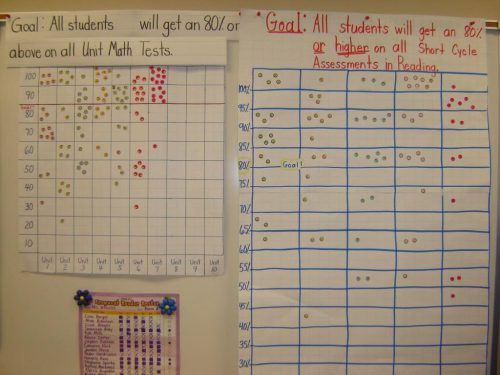 Goal: All students will get an 80% or
above on all Unit Math Tests.
100
90
Goal!
80
70
60
50
40
30
20
10
Unit 1
Unit 2
Unit 3
Unit 4
Unit 5
Unit 6
Unit 7
Unit 8
Unit 9
Unit 10
Goal: All students will get an 80%
or higher on all Short Cycle
Assessments in Reading.
100%
95%
90%
85%
80%
Goal!
75%
70%
65%
60%
55%
50%
45%
40%
35%
30%